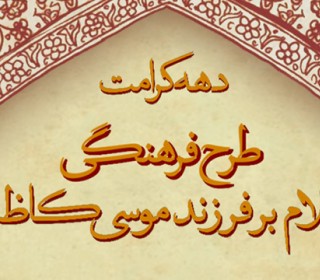 دهه کرامت
طرح فرهنگی
لام بر فرزند موسی کاظ